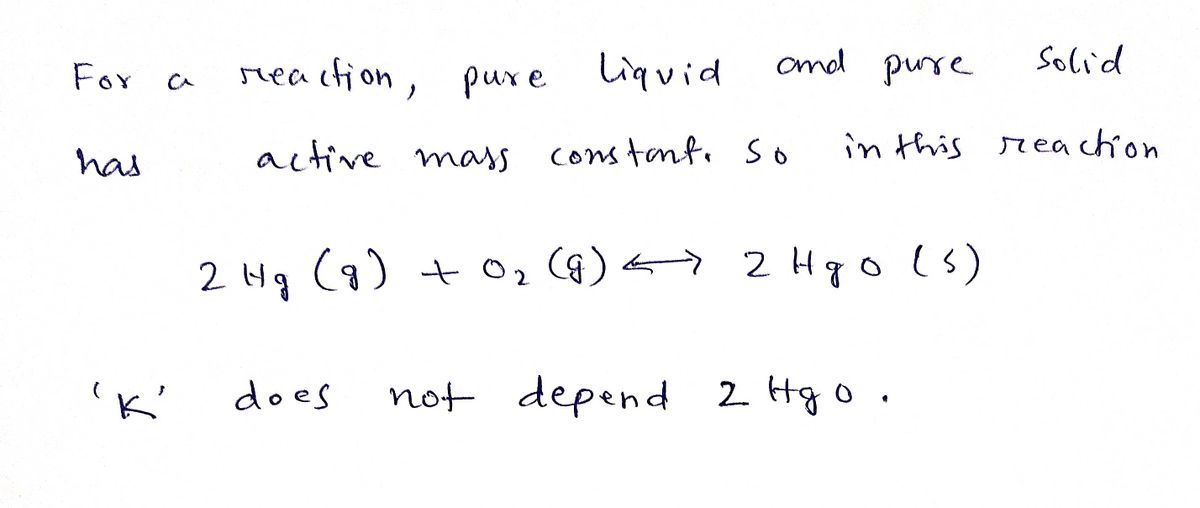 For a reaction, pure liquid and pure solid
has active mass constant. So in this reaction
2 Hg (g) + O₂ (g) ⟷ 2 HgO (s)
'K' does not depend 2 HgO.